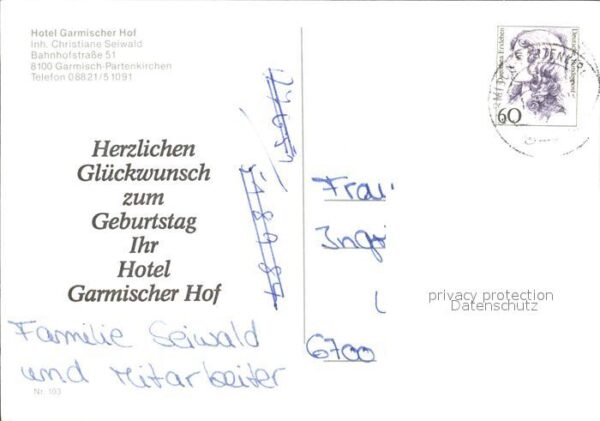 Hotel Garmischer Hof
Inh. Christiane Seiwald
Bahnhofstraße 51
8100 Garmisch-Partenkirchen
Telefon 08821/51091
60
Herzlichen
Glückwunsch
zum
Geburtstag
Ihr
Hotel
Garmischer Hof
Familie Seiwald
und Mitarbeiter
Nr. 103
Frau
6700
privacy protection
Datenschutz